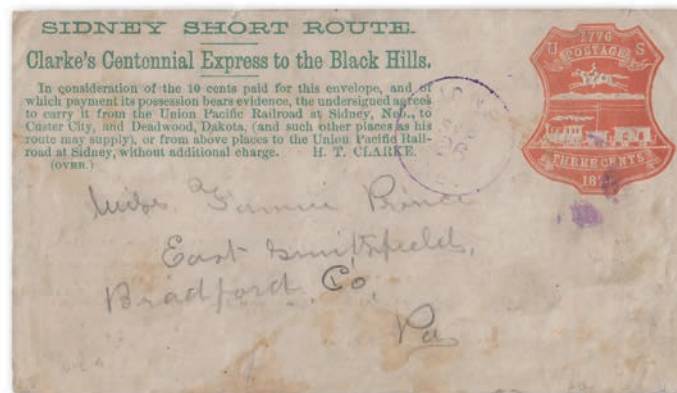 SIDNEY SHORT ROUTE.
Clarke's Centennial Express to the Black Hills.
In consideration of the 10 cents paid for this envelope, and of
which payment its possession bears evidence, the undersigned agrees
to carry it from the Union Pacific Railroad at Sidney, Neb., to
Custer City, and Deadwood, Dakota, (and such other places as his
route may supply), or from above places to the Union Pacific Rail-
road at Sidney, without additional charge. H. T. CLARKE.
(OVER.)
1776
U S
POSTAGE
THREE CENTS
Miss. Fannie Prince
East Smithfield,
Bradford Co,
Pa